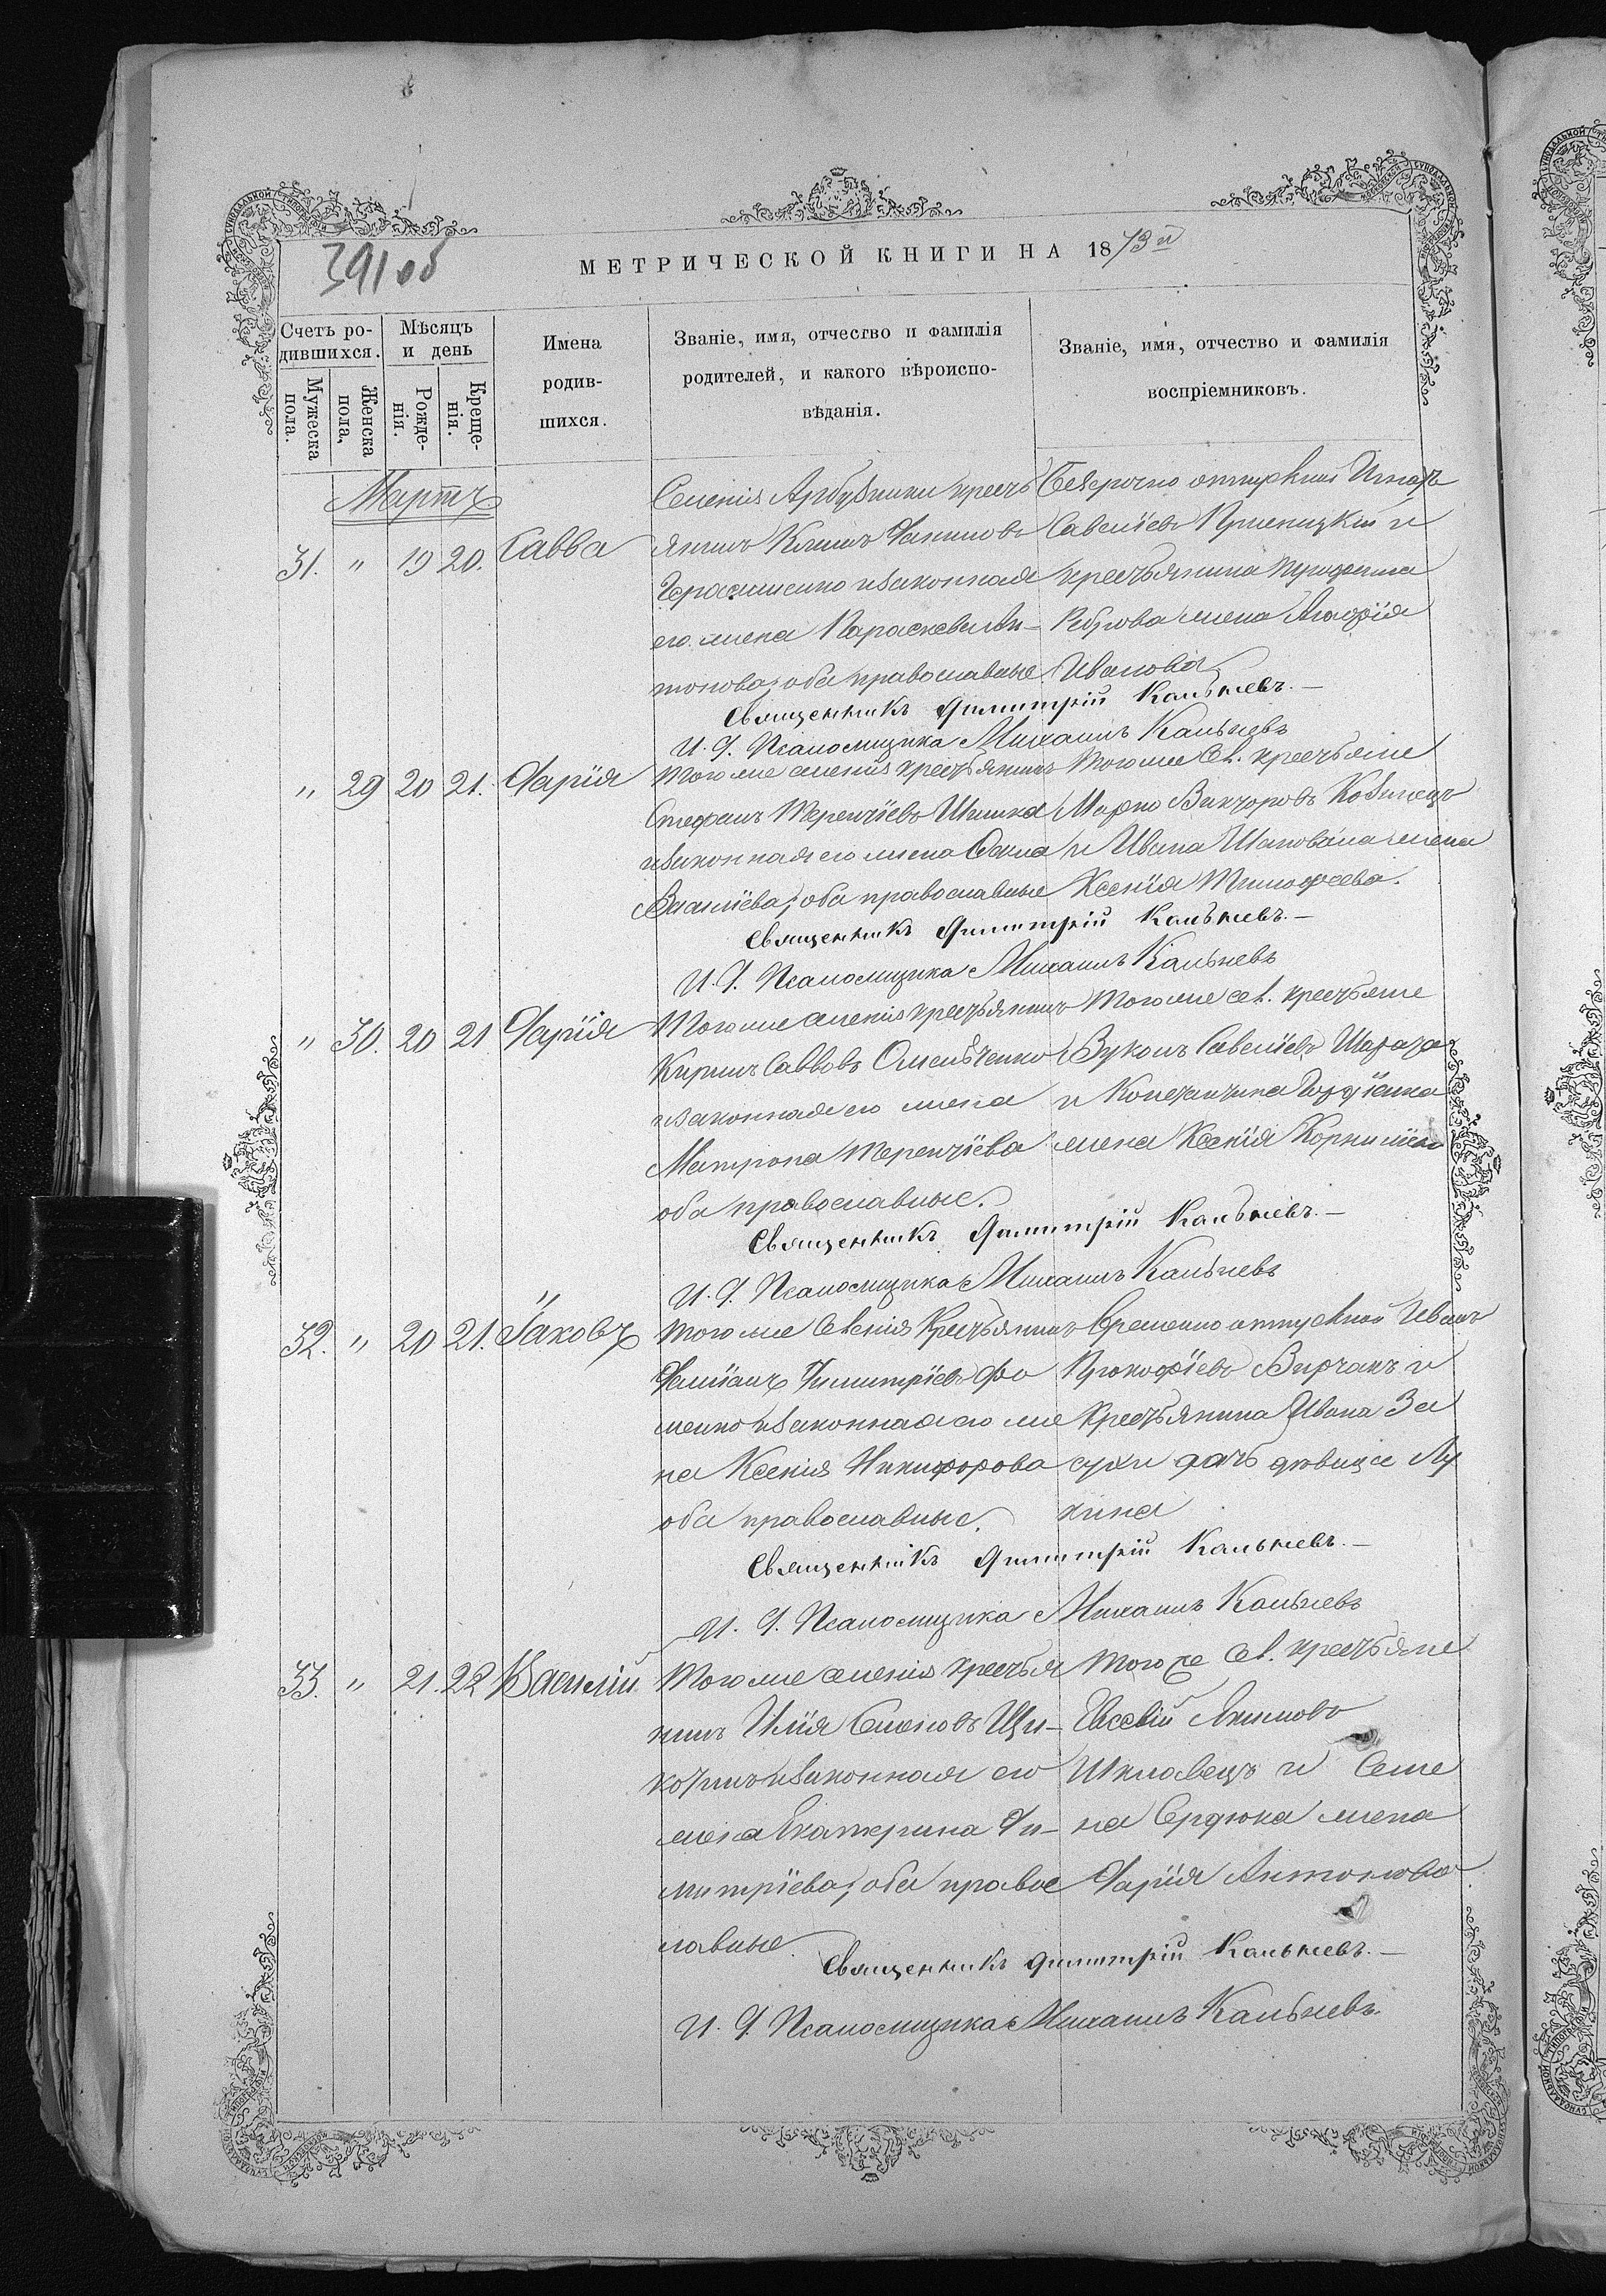 391об
МЕТРИЧЕСКОЙ КНИГИ НА 1873й
Счетъ ро-
дившихся.
Мужеска
пола.
Женска
пола,
Мѣсяцъ
и день
Рожде-
нія.
Креще-
нія.
Имена
родив-
шихся.
Званіе, имя, отчество и фамилія
родителей, и какого вѣроиспо-
вѣданія.
Званіе, имя, отчество и фамилія
воспріемниковъ.
Мартъ
31. " 19 20. Савва
Селенія Арбузинки кресть
янинъ Климъ Іакимовъ
Герасименко и законная
его жена Параскева Ан-
тонова; оба православные
Безсрочно отпускной Игнатъ
Савеліевъ Пшеницкій и
крестьянина Прокопия
Реброва жена Агафія
Иванова
Священникъ Димитрій Кальневъ.-
И. Д. Псаломщика Михаилъ Кальневъ
" 29 20 21. Дарія
Того же селенія крестьянинъ
Стефанъ Терентіевъ Шишка
и законная его жена Фекла
Василіева; оба православные
Того же сел. крестьяне
Марко Викторовъ Кобылецъ
и Ивана Шаповала жена
Ксенія Тимофеева.
Священникъ Димитрій Кальневъ.-
И. Д. Псаломщика Михаилъ Кальневъ
" 30. 20 21 Дарія
Того же селенія крестьянинъ
Кирилъ Саввовъ Омельченко
и законная его жена
Матрона Терентіева
оба православные.
Того же сел. крестьяне
Вуколъ Савеліевъ
и жена Ксенія
Священникъ Димитрій Кальневъ.-
И. Д. Псаломщика Михаилъ Кальневъ
32. " 20 21. Іаковъ
Того же Селенія Крестьянинъ
Даміанъ Димитріевъ Фо
менко и законная его же
на Ксенія Никифорова
оба православные.
Временно отпускной Иванъ
Прокофіевъ Вирчакъ и
Крестьянина Ивана За
сухи дочь девица Лу
кина
Священникъ Димитрій Кальневъ.-
И. Д. Псаломщика Михаилъ Кальневъ
33. " 21. 22 Василій
Того же селенія крестья
нинъ Илія Семеновъ Щи-
котинъ и законная его
жена Екатерина Ди-
митріева; оба правос
лавные.
Того же сел. крестьяне
Евсевій Якимовъ
Шкловецъ и Семе
на Сердюка жена
Дарія Антонова
Священникъ Димитрій Кальневъ.-
И. Д. Псаломщика Михаилъ Кальневъ.